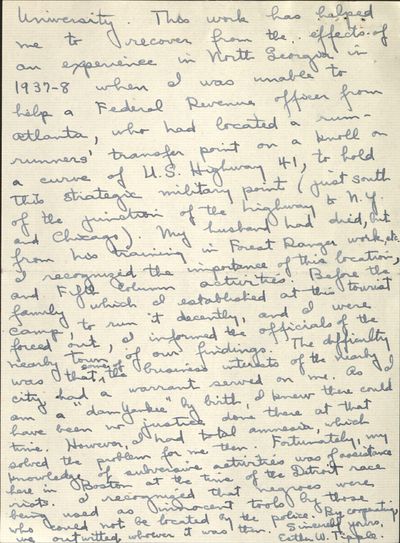 University. This work has helped
me to recover from the effects of
an experience in North Georgia in
1937-8 when I was unable to
help a Federal Revenue officer from
Atlanta, who had located a rum-
runners' transfer point on a knoll on
a curve of U.S. Highway 41, to hold
this strategic military point (just south
of the junction of the highway to N.Y.
and Chicago). My husband had died, but
from his training in Forest Ranger work, etc.
I recognized the importance of this location,
and Fifth Column activities. Before the
family which I established at this tourist
camp, to run it decently, and I were
forced out, I informed the officials of the
nearby town of our findings. The difficulty
was that some of the business interests of the nearby
city had a warrant served on me. As I
am a "damYankee" by birth, I knew there could
have been no justice done there at that
time. However, I had total amnesia, which
solved the problem for me then. Fortunately, my
knowledge of subversive activities was of assistance
here in Boston at the time of the Detroit race
riots. I recognized that negroes were
being used as innocent tools by those
who could not be located by the police. By cooperating,
we outwitted whoever it was then. Sincerely yours,
Esther W. Tipple.